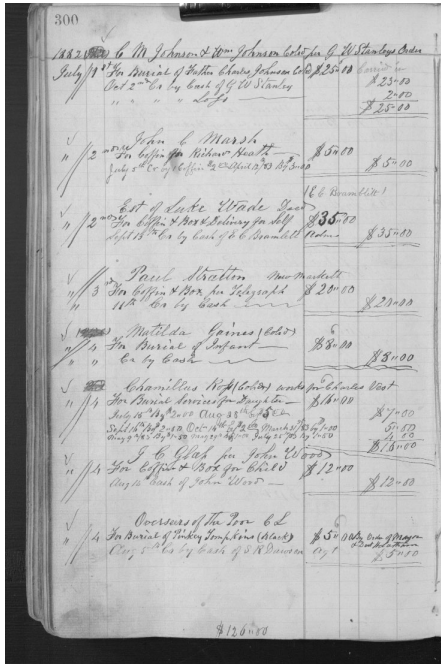 300
1882 C M Johnson & Wm Johnson Cold per G W Stanleys Order
July 1st For Burial of Father Charles Johnson Cold $25"00
Oct 2nd Cr by Cash of G W Stanley $23-00
" " " " Loss 2-00
$25-00
John C Marsh
" 2nd For Coffin for Richard Heath $5"00
July 5th Cr by Coffin $2 April 12/83 By $3"00 $5"00
Est of Luke Wade Decd (E C Bramblitt)
" 2nd For Coffin & Box & Delivery for Self $35"00
Sept 18th Cr by Cash of E C Bramblitt $35"00
Paul Stratton New Markett
" 3rd For Coffin & Box per Telegraph $20"00
" 11th Cr by Cash $20"00
Matilda Gaines (Cold)
" 4 For Burial of Infant $8"00
" " Cr by Cash $8"00
Ross (Cold) works for Charles Vest
" 4 For Burial Services for Daughter $16"00
July 15th By $2"00 Aug $7"00
Sept 16th By 2"00 Oct 14th March 31/83 by 1"00 5"00
July 25/83 by 1"50 4 00
$16"00
J C Glah per John Wood
" 4 For Coffin & Box for Child $12"00
Aug 14 Cash of John Wood $12"00
Oversurs of the Poor C L
" 4 For Burial of Pinkey Tompkins (black) $5"00 by order of Mayor
Aug 5th Cr by Cash of S R Dawson Ag't $5"00
$126"00